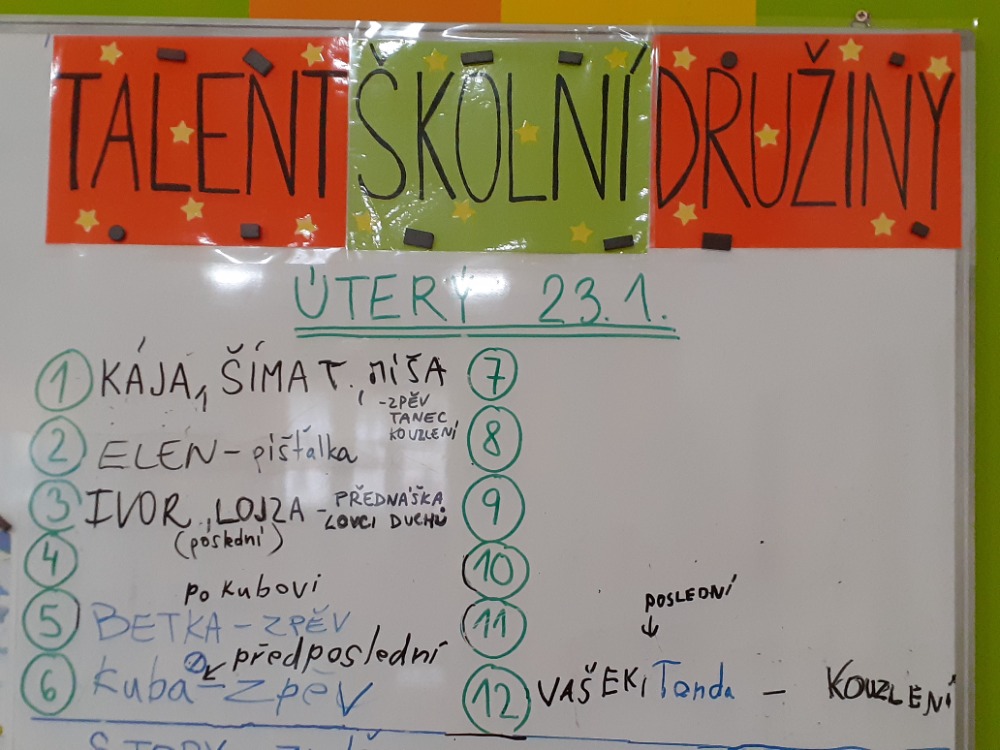 TALENT ŠKOLNÍ DRUŽINY
ÚTERÝ 23.1.
1 KÁJA, ŠÍMA T. MÍŠA
-ZPĚV
TANEC
KOUZLENÍ
2 ELEN - píšťalka
3 IVOR, LOJZA - PŘEDNÁŠKA
LOVCI DUCHŮ
(poslední)
4
po Kubovi
5 BETKA - ZPĚV
předposlední
6 Kuba - zpěv
7
8
9
10
11
POSLEDNÍ
12 VAŠEK, Tonda - KOUZLENÍ